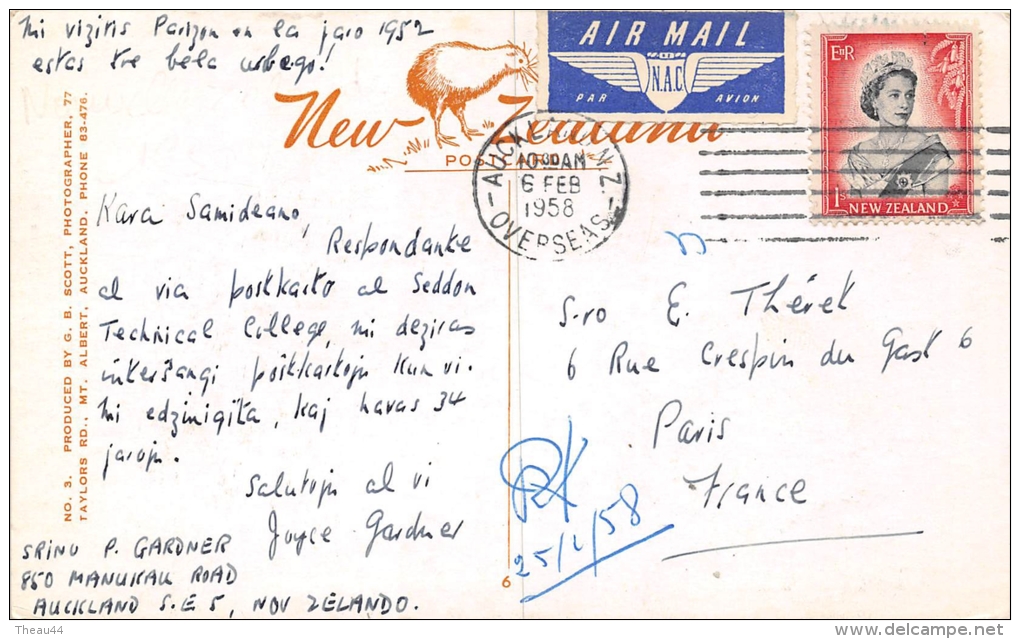 Mi vizitis Parizon en la jaro 1952
estas tre bela urbego!
New Zealand
POST CARD
AIR MAIL
N.A.C
PAR AVION
EIIR
1s
NEW ZEALAND
AUCKLAND N.Z.
10 30 AM
6 FEB
1958
OVERSEAS
NO. 3. PRODUCED BY G. B. SCOTT, PHOTOGRAPHER, 77
TAYLORS RD., MT. ALBERT, AUCKLAND. PHONE 83-476.
Kara Samideano,
Respondante
al via postkarto al Seddon
Technical College, mi deziras
interŝanĝi poŝtkartojn kun vi.
Mi edziniĝita, kaj havas 34
jarojn.
Salutojn al vi
Joyce Gardner
SRINO P. GARDNER
850 MANUKAU ROAD
AUCKLAND S.E 5, NOV ZELANDO.
S-ro E. Théret
6 Rue Crespin du Gast 6
Paris
France
RK
25/2/58
6
Theau44
www.delcampe.net